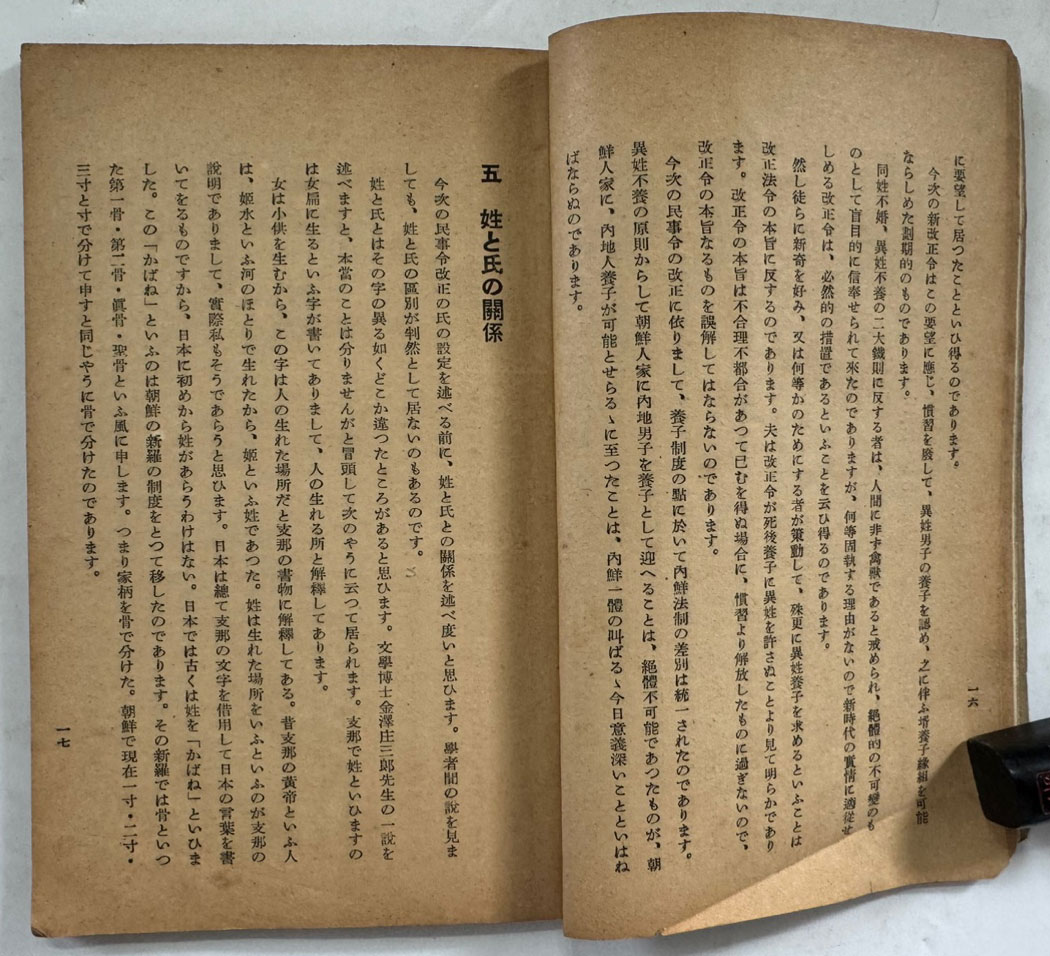 に要望して居つたことといひ得るのであります。
今次の新改正令はこの要望に應じ、慣習を廢して、異姓男子の養子を認め、之に伴ふ壻養子緣組を可能
ならしめた劃期的のものであります。
同姓不婚、異姓不養の二大鐵則に反する者は、人間に非ず禽獸であると戒められ、絕體的の不可變のも
のとして盲目的に信奉せられて來たのでありますが、何等固執する理由がないので新時代の實情に適従せ
しめる改正令は、必然的の措置であるといふことを云ひ得るのであります。
然し徒らに新奇を好み、又は何等かのためにする者が策動して、殊更に異姓養子を求めるといふことは
改正法令の本旨に反するのであります。夫は改正令が死後養子に異姓を許さぬことより見て明らかであり
ます。改正令の本旨は不合理不都合があつて已むを得ぬ場合に、慣習より解放したものに過ぎないので、
改正令の本旨なるものを誤解してはならないのであります。
今次の民事令の改正に依りまして、養子制度の點に於いて內鮮法制の差別は統一されたのであります。
異姓不養の原則からして朝鮮人家に內地男子を養子として迎へることは、絕體不可能であつたものが、朝
鮮人家に、內地人養子が可能とせらるゝに至つたことは、內鮮一體の叫ばるゝ今日意義深いことといはね
ばならぬのであります。
一六
五 姓と氏の關係
今次の民事令改正の氏の設定を述べる前に、姓と氏との關係を述べ度いと思ひます。學者間の說を見ま
しても、姓と氏の區別が判然として居ないのもあるのです。
姓と氏とはその字の異る如くどこか違つたところがあると思ひます。文學博士金澤庄三郎先生の一說を
述べますと、本當のことは分りませんがと冒頭して次のやうに云つて居られます。支那で姓といひますの
は女扁に生るといふ字が書いてありまして、人の生れる所と解釋してあります。
女は小供を生むから、この字は人の生れた場所だと支那の書物に解釋してある。昔支那の黃帝といふ人
は、姬水といふ河のほとりで生れたから、姬といふ姓であつた。姓は生れた場所をいふといふのが支那の
說明でありまして、實際私もそうであらうと思ひます。日本は總て支那の文字を借用して日本の言葉を書
いてをるものですから、日本に初めから姓があらうわけはない。日本では古くは姓を「かばね」といひま
した。この「かばね」といふのは朝鮮の新羅の制度をとつて移したのであります。その新羅では骨といつ
た第一骨・第二骨・眞骨・聖骨といふ風に申します。つまり家柄を骨で分けた。朝鮮で現在一寸・二寸・
三寸と寸で分けて申すと同じやうに骨で分けたのであります。
一七